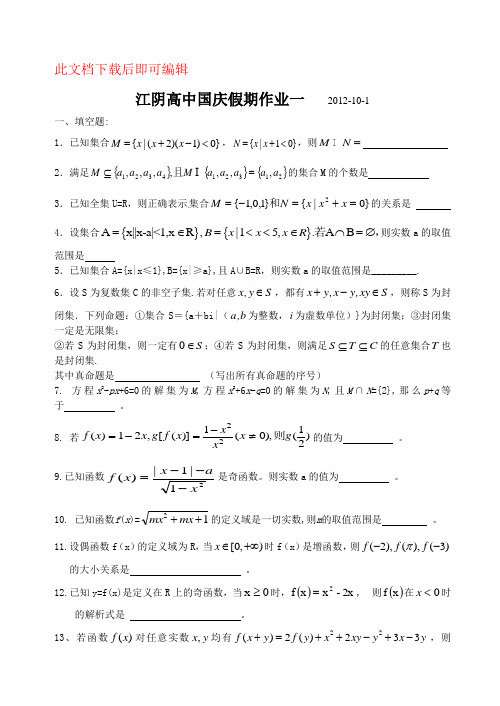 此文档下载后即可编辑
江阴高中国庆假期作业一 2012-10-1
一、填空题:
1．已知集合M={x|(x+2)(x−1)<0}，N={x|x+1<0}，则M I N=
2．满足M⊆{a₁,a₂,a₃,a₄},且M I {a₁,a₂,a₃}={a₁,a₂}的集合M的个数是
3．已知全集U=R，则正确表示集合M={−1,0,1}和N={x|x²+x=0}的关系是
4．设集合A={x||x-a|<1,x∈R},B={x|1<x<5,x∈R}.若A∩B=∅,则实数a的取值
范围是
5．已知集合A={x|x≤1},B={x|≥a},且A∪B=R，则实数a的取值范围是_________.
6．设S为复数集C的非空子集.若对任意x,y∈S，都有x+y,x−y,xy∈S，则称S为封
闭集．下列命题：①集合S＝{a＋bi|（a,b为整数，i为虚数单位）}为封闭集；③封闭集
一定是无限集；
②若S为封闭集，则一定有0∈S；④若S为封闭集，则满足S⊆T⊆C的任意集合T也
是封闭集.
其中真命题是 （写出所有真命题的序号）
7. 方程x²-px+6=0的解集为M,方程x²+6x-q=0的解集为N,且M∩N={2},那么p+q等
于 。
8. 若f(x)=1−2x,g[f(x)]=(1−x²)/x²(x≠0),则g(1/2)的值为 。
9.已知函数f(x)=(|x−1|−a)/√(1−x²)是奇函数。则实数a的值为 。
10. 已知函数f(x)=√(mx²+mx+1)的定义域是一切实数,则m的取值范围是 。
11.设偶函数f（x）的定义域为R，当x∈[0,+∞)时f（x）是增函数，则f(−2),f(π),f(−3)
的大小关系是 。
12.已知y=f(x)是定义在R上的奇函数，当x≥0时，f(x)=x²-2x, 则f(x)在x<0时
的解析式是 。
13、若函数f(x)对任意实数x,y均有f(x+y)=2f(y)+x²+2xy−y²+3x−3y，则